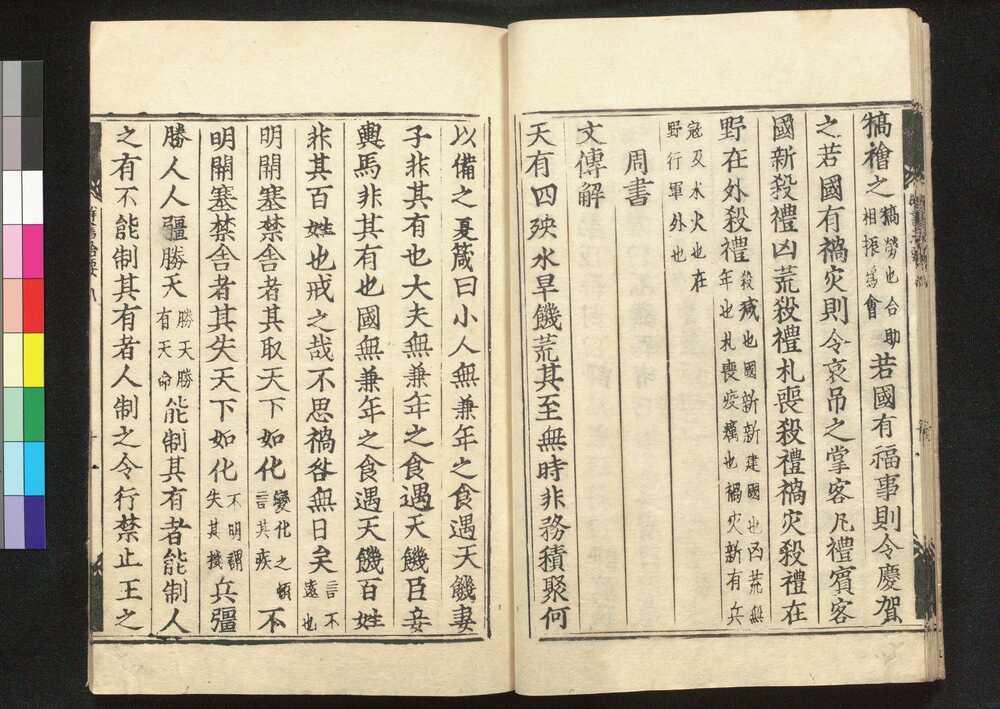 犒禬之犒勞也合助相振爲會若國有福事則令慶賀
之若國有禍灾則令哀吊之掌客凡禮賓客
國新殺禮凶荒殺禮札喪殺禮禍灾殺禮在
野在外殺禮殺殘也國新新建國也凶荒無年也札喪疫癘也禍灾新有兵
寇及水火也在野行軍外也
周書
文傳解
天有四殃水旱饑荒其至無時非務積聚何
以備之夏箴曰小人無兼年之食遇天饑妻
子非其有也大夫無兼年之食遇天饑臣妾
輿馬非其有也國無兼年之食遇天饑百姓
非其百姓也戒之哉不思禍咎無日矣言不遠也
明開塞禁舍者其取天下如化變化之頓言其疾不
明開塞禁舍者其失天下如化不明謂失其機兵彊
勝人人彊勝天勝天勝有天命能制其有者能制人
之有不能制其有者人制之令行禁止王之